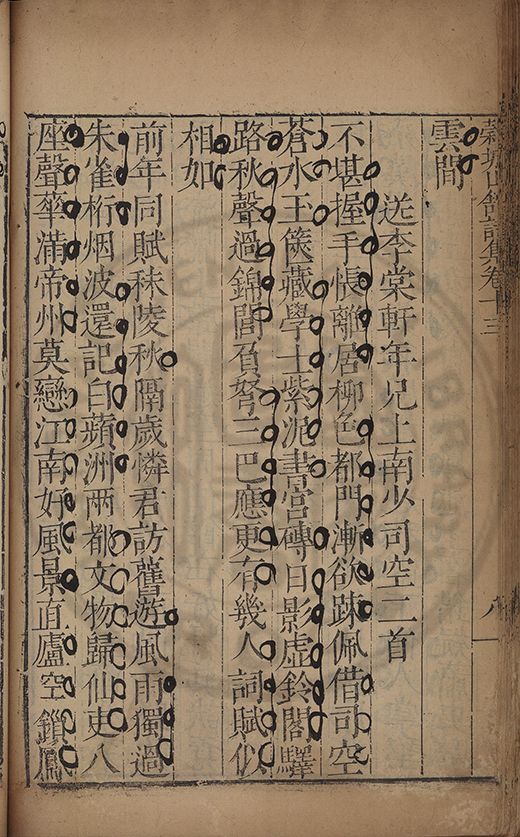 穀城山館詩集卷十三
八
雲間
送李棠軒年兄上南少司空二首
不堪握手悵離居柳色都門漸欲踈佩借司空
蒼水玉篋藏學士紫泥書宮磚日影虛鈴閣驛
路秋聲過錦閭負弩三巴應更有幾人詞賦似
相如
前年同賦秣陵秋隔歲憐君訪舊遊風雨獨過
朱雀桁烟波還記白蘋洲兩都文物歸仙吏八
座聲華滿帝州莫戀江南好風景直廬空鎖鳳